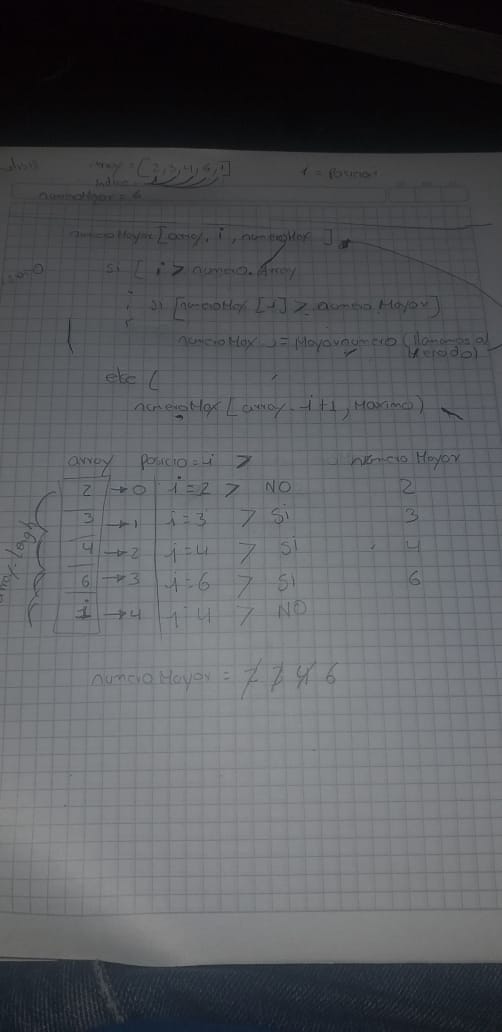 array = [2,3,4,6,1] i = Posicion
numeroMayor = 6
numeroMayor [array, i, numeroMax ]
si [ i > numero.Array
si [numeroMax [i] > numero Mayor]
numeroMax = Mayornumero (llamamos al
etc (
numeroMax [array i+1, Maximo)
array Posicio = i > número Mayor
2 → 0 i = 2 > NO 2
3 → 1 i = 3 > Si 3
4 → 2 i = 4 > Si 4
6 → 3 i = 6 > Si 6
1 → 4 i 4 > NO
numeroMayor = 6